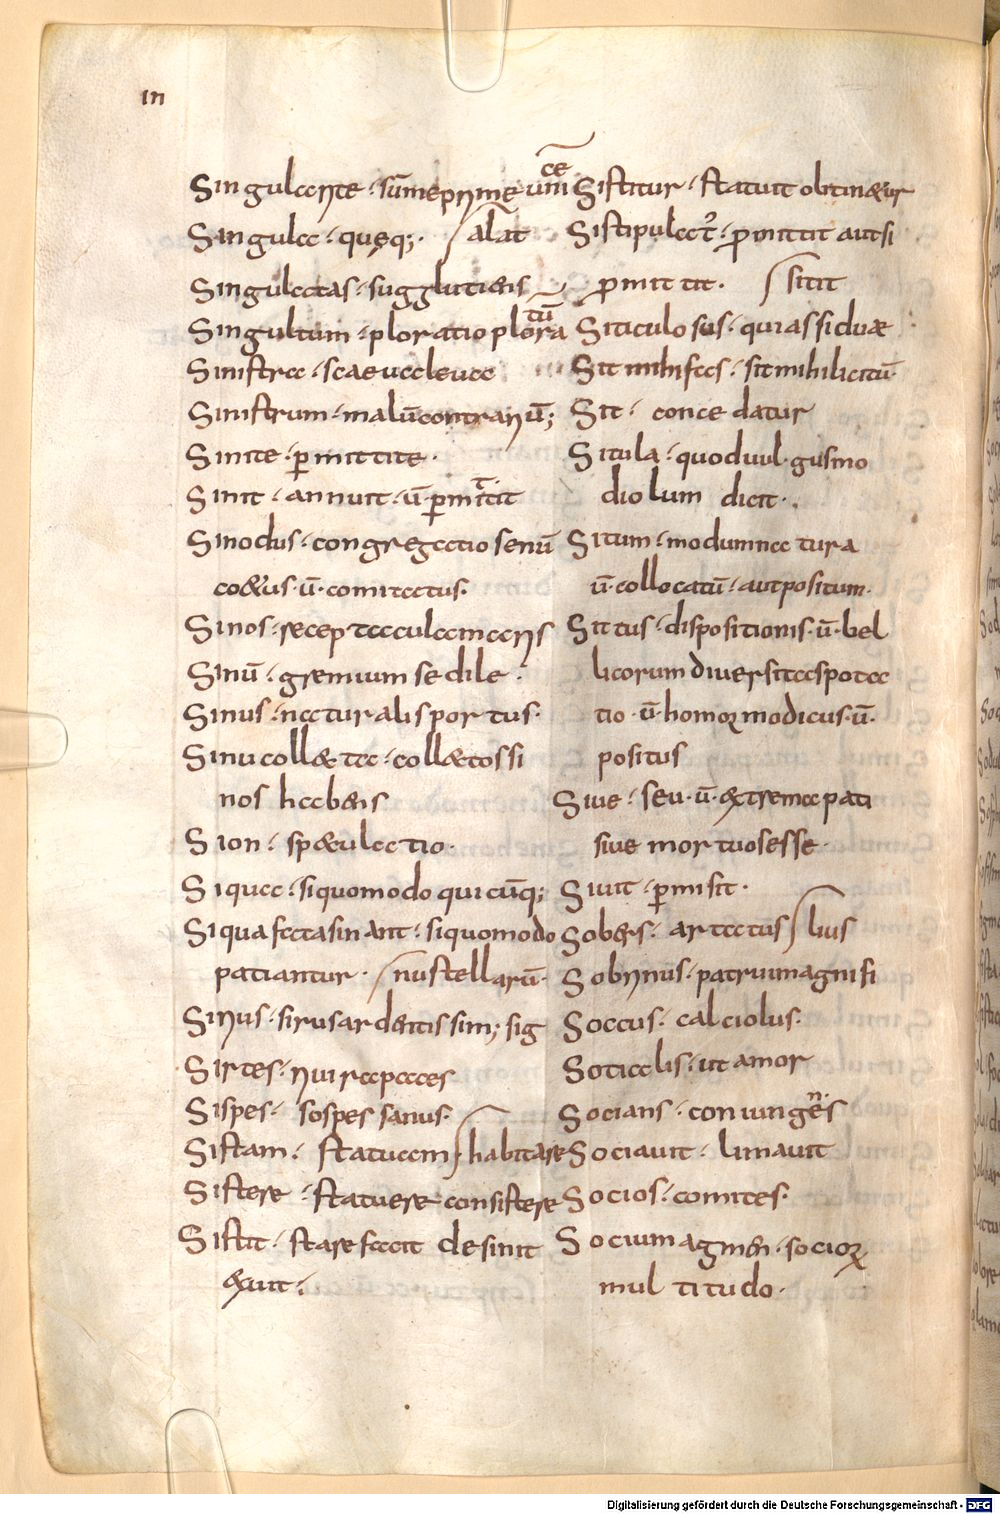 in
Singularite · sūmeprime unice
Singula · quęq; · ʃ alāt
Singultas · sugglutiens
Singultum · ploratio plora tū
Sinistra · scaeua leua
Sinistrum · malū contrariū;
Sinite · ꝑmittite ·
Sinit · annuit · ū · ꝑmittit
Sinodus · congregatio senū
coetus · ū · comitatus ·
Sinos · receptacula maris
Sinū · gremium sedile ·
Sinus · naturalis portus ·
Sinu collecta · collectos si
nos habens
Sion · speculatio ·
Siqua · siquomodo quicūq;
Siqua fata sinant · siquomodo
patiantur · ʃ nustellarū ·
Sirius · sirus ardentissim; sig
Sirtes · riui rapaces
Sispes · sospes sanus ·
Sistam · statuam · ʃ habitare
Sistere · statuere consistere
Sistit · stare facit desinit
exuit ·
Sistitur · statuit obtinetur
Sistipulat᷑ · ꝓmittit autsi
ꝓmittit · ʃ sitit
Siticulosus · qui assiduae
Sit mihi fas · sit mihi licitū ·
Sit · concedatur
Situla · quod uulgus mo
diolum dicit ·
Situm · modum natura
ū · collocatū · aut positum ·
Situs · dispositionis · ū · bel
licorum diuersitas pota
tio · ū · homoꝝ modicus · ū ·
positus
Siue · seu · ū · extrema pati
siue mortuos esse ·
Siuit · ꝑmisit ·
Sobers · artatus ʃ lius
Sobrinus · patrui magni fi
Soccus · calciolus ·
Socialis · ut amor
Socians · coniungens
Sociauit · limauit
Socios · comites ·
Socium agmen · socioꝝ
multitudo ·
Digitalisierung gefördert durch die Deutsche Forschungsgemeinschaft - DFG